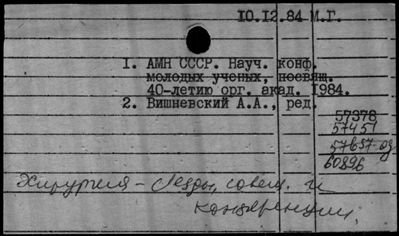 10.12.84 М.Г.
1. АМН СССР. Науч. конф.
молодых ученых, посвящ.
40-летию орг. акад. 1984.
2. Вишневский А.А., ред.
57378
57451
57657-од
60896
Хирургия - Съезды, совещ. и
конференции.